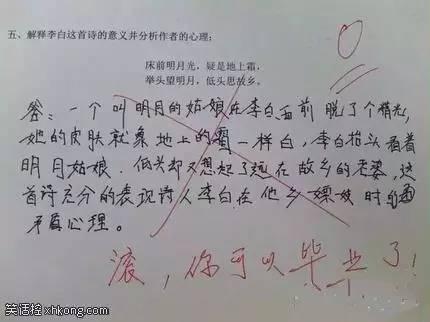 五、解释李白这首诗的意义并分析作者的心理：
床前明月光，疑是地上霜，
举头望明月，低头思故乡。
0
答：一个叫明月的姑娘在李白面前脱了个精光，
她的皮肤就象地上的霜一样白，李白抬头看着
明月姑娘．低头却又想起了远在故乡的老婆，这
首诗充分的表现诗人李白在他乡嫖妓时的
矛盾心理。
滚，你可以毕业了！
笑话控-xhkong.com